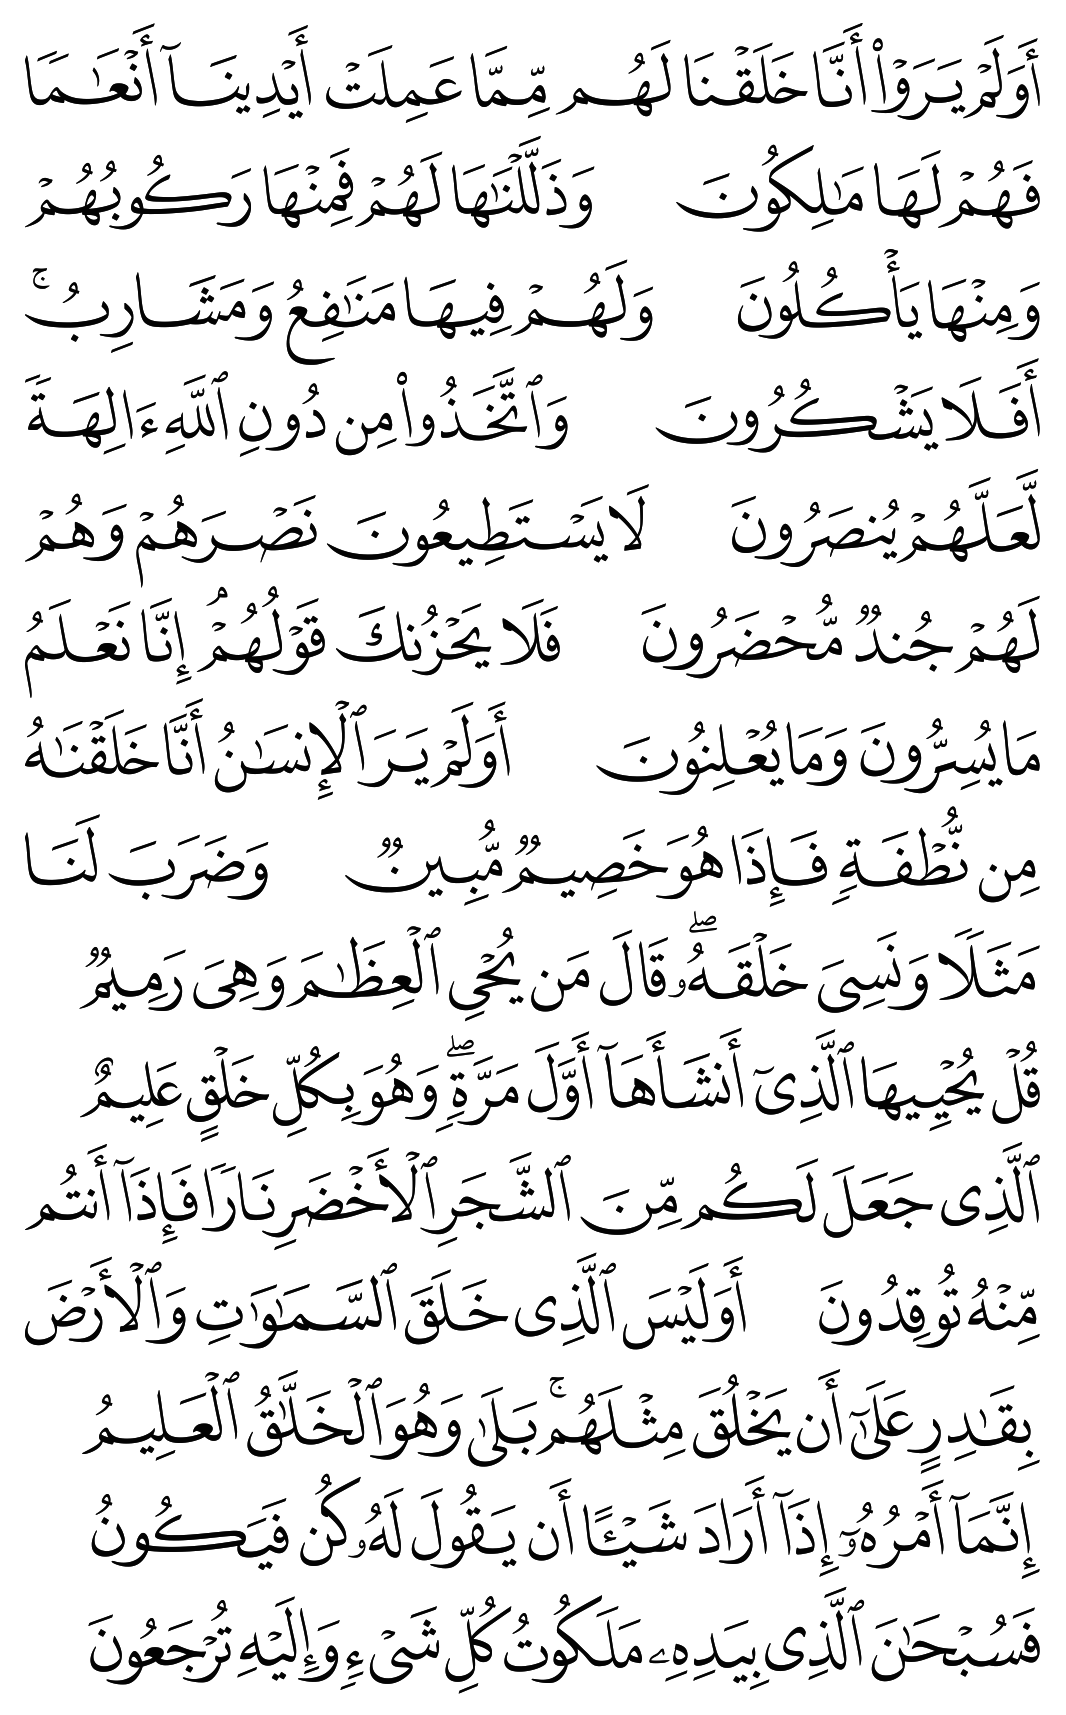 أَوَلَمۡ يَرَوۡاْ أَنَّا خَلَقۡنَا لَهُم مِّمَّا عَمِلَتۡ أَيۡدِينَآ أَنۡعَٰمٗا
فَهُمۡ لَهَا مَٰلِكُونَ وَذَلَّلۡنَٰهَا لَهُمۡ فَمِنۡهَا رَكُوبُهُمۡ
وَمِنۡهَا يَأۡكُلُونَ وَلَهُمۡ فِيهَا مَنَٰفِعُ وَمَشَارِبُۚ
أَفَلَا يَشۡكُرُونَ وَٱتَّخَذُواْ مِن دُونِ ٱللَّهِ ءَالِهَةٗ
لَّعَلَّهُمۡ يُنصَرُونَ لَا يَسۡتَطِيعُونَ نَصۡرَهُمۡ وَهُمۡ
لَهُمۡ جُندٞ مُّحۡضَرُونَ فَلَا يَحۡزُنكَ قَوۡلُهُمۡۘ إِنَّا نَعۡلَمُ
مَا يُسِرُّونَ وَمَا يُعۡلِنُونَ أَوَلَمۡ يَرَ ٱلۡإِنسَٰنُ أَنَّا خَلَقۡنَٰهُ
مِن نُّطۡفَةٖ فَإِذَا هُوَ خَصِيمٞ مُّبِينٞ وَضَرَبَ لَنَا
مَثَلٗا وَنَسِيَ خَلۡقَهُۥۖ قَالَ مَن يُحۡيِ ٱلۡعِظَٰمَ وَهِيَ رَمِيمٞ
قُلۡ يُحۡيِيهَا ٱلَّذِيٓ أَنشَأَهَآ أَوَّلَ مَرَّةٖۖ وَهُوَ بِكُلِّ خَلۡقٍ عَلِيمٌ
ٱلَّذِي جَعَلَ لَكُم مِّنَ ٱلشَّجَرِ ٱلۡأَخۡضَرِ نَارٗا فَإِذَآ أَنتُم
مِّنۡهُ تُوقِدُونَ أَوَلَيۡسَ ٱلَّذِي خَلَقَ ٱلسَّمَٰوَٰتِ وَٱلۡأَرۡضَ
بِقَٰدِرٍ عَلَىٰٓ أَن يَخۡلُقَ مِثۡلَهُمۚ بَلَىٰ وَهُوَ ٱلۡخَلَّٰقُ ٱلۡعَلِيمُ
إِنَّمَآ أَمۡرُهُۥٓ إِذَآ أَرَادَ شَيۡـًٔا أَن يَقُولَ لَهُۥ كُن فَيَكُونُ
فَسُبۡحَٰنَ ٱلَّذِي بِيَدِهِۦ مَلَكُوتُ كُلِّ شَيۡءٖ وَإِلَيۡهِ تُرۡجَعُونَ